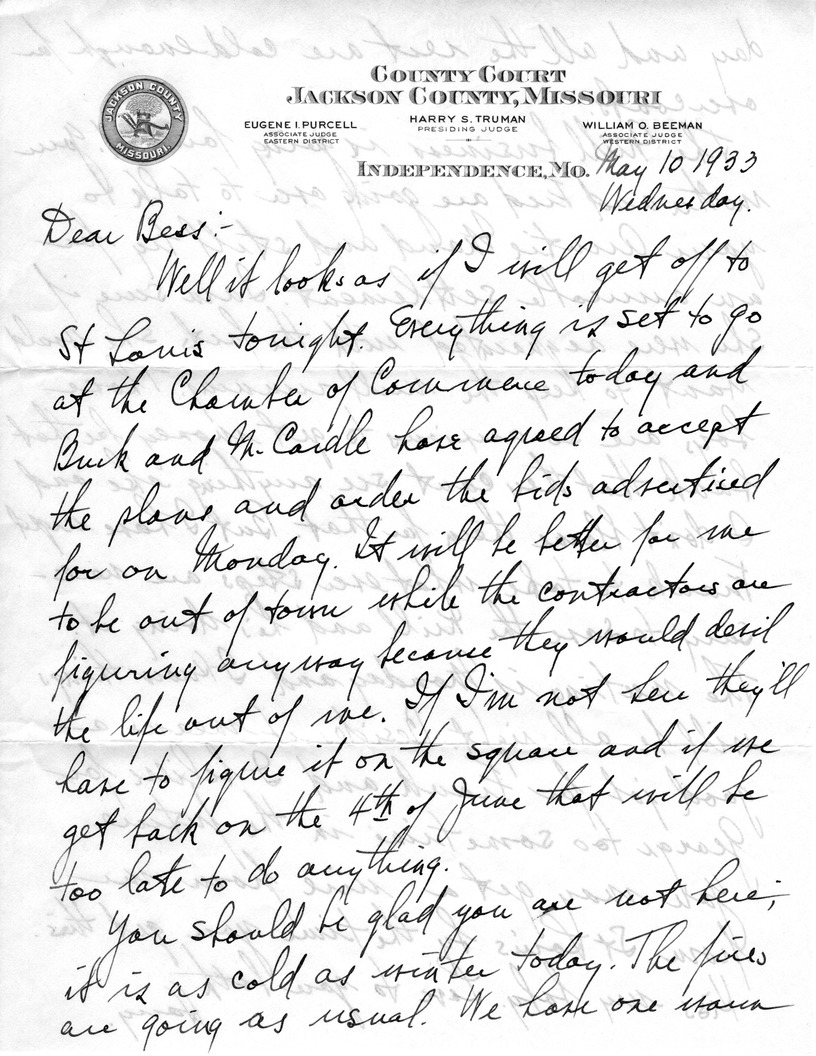 COUNTY COURT
JACKSON COUNTY, MISSOURI
JACKSON COUNTY
MISSOURI
EUGENE I. PURCELL
ASSOCIATE JUDGE
EASTERN DISTRICT
HARRY S. TRUMAN
PRESIDING JUDGE
WILLIAM O. BEEMAN
ASSOCIATE JUDGE
WESTERN DISTRICT
INDEPENDENCE, MO. May 10 1933
Wednesday.
Dear Bess:-
Well it looks as if I will get off to
St Louis tonight. Everything is set to go
at the Chamber of Commerce today and
Buck and McCardle have agreed to accept
the plans and order the bids advertised
for on Monday. It will be better for me
to be out of town while the contractors are
figuring anyway because they would devil
the life out of me. If I'm not here they'll
have to figure it on the square and if we
get back on the 4th of June that will be
too late to do anything.
You should be glad you are not here;
it is as cold as winter today. The fires
are going as usual. We have one warm